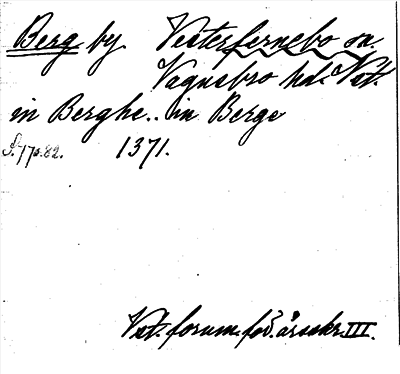 Berg by Vesterfernebo sn.
Vagnsbro hd. Vst.
in Berghe.. in Berge
1371.
Vst. fornm. för. årsskr. III.